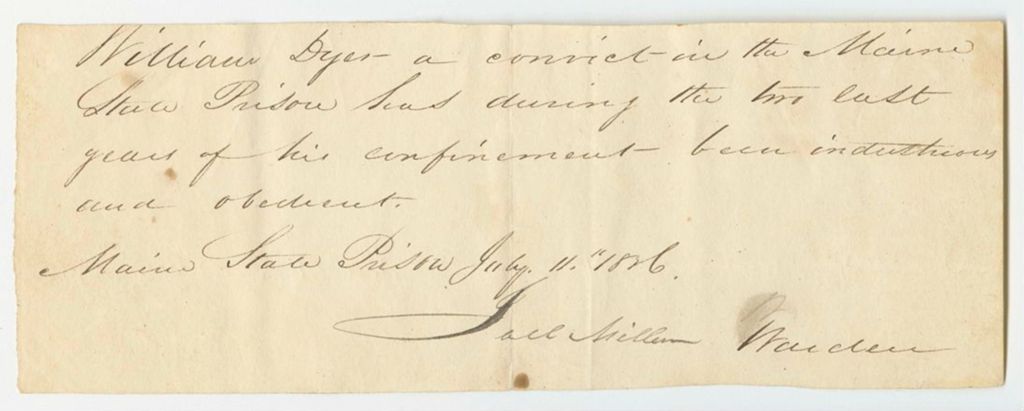 William Dyer a convict in the Maine
State Prison has during the two last
years of his confinement been industrious
and obedient.
Maine State Prison July. 11." 1826.
Joel Miller Warden